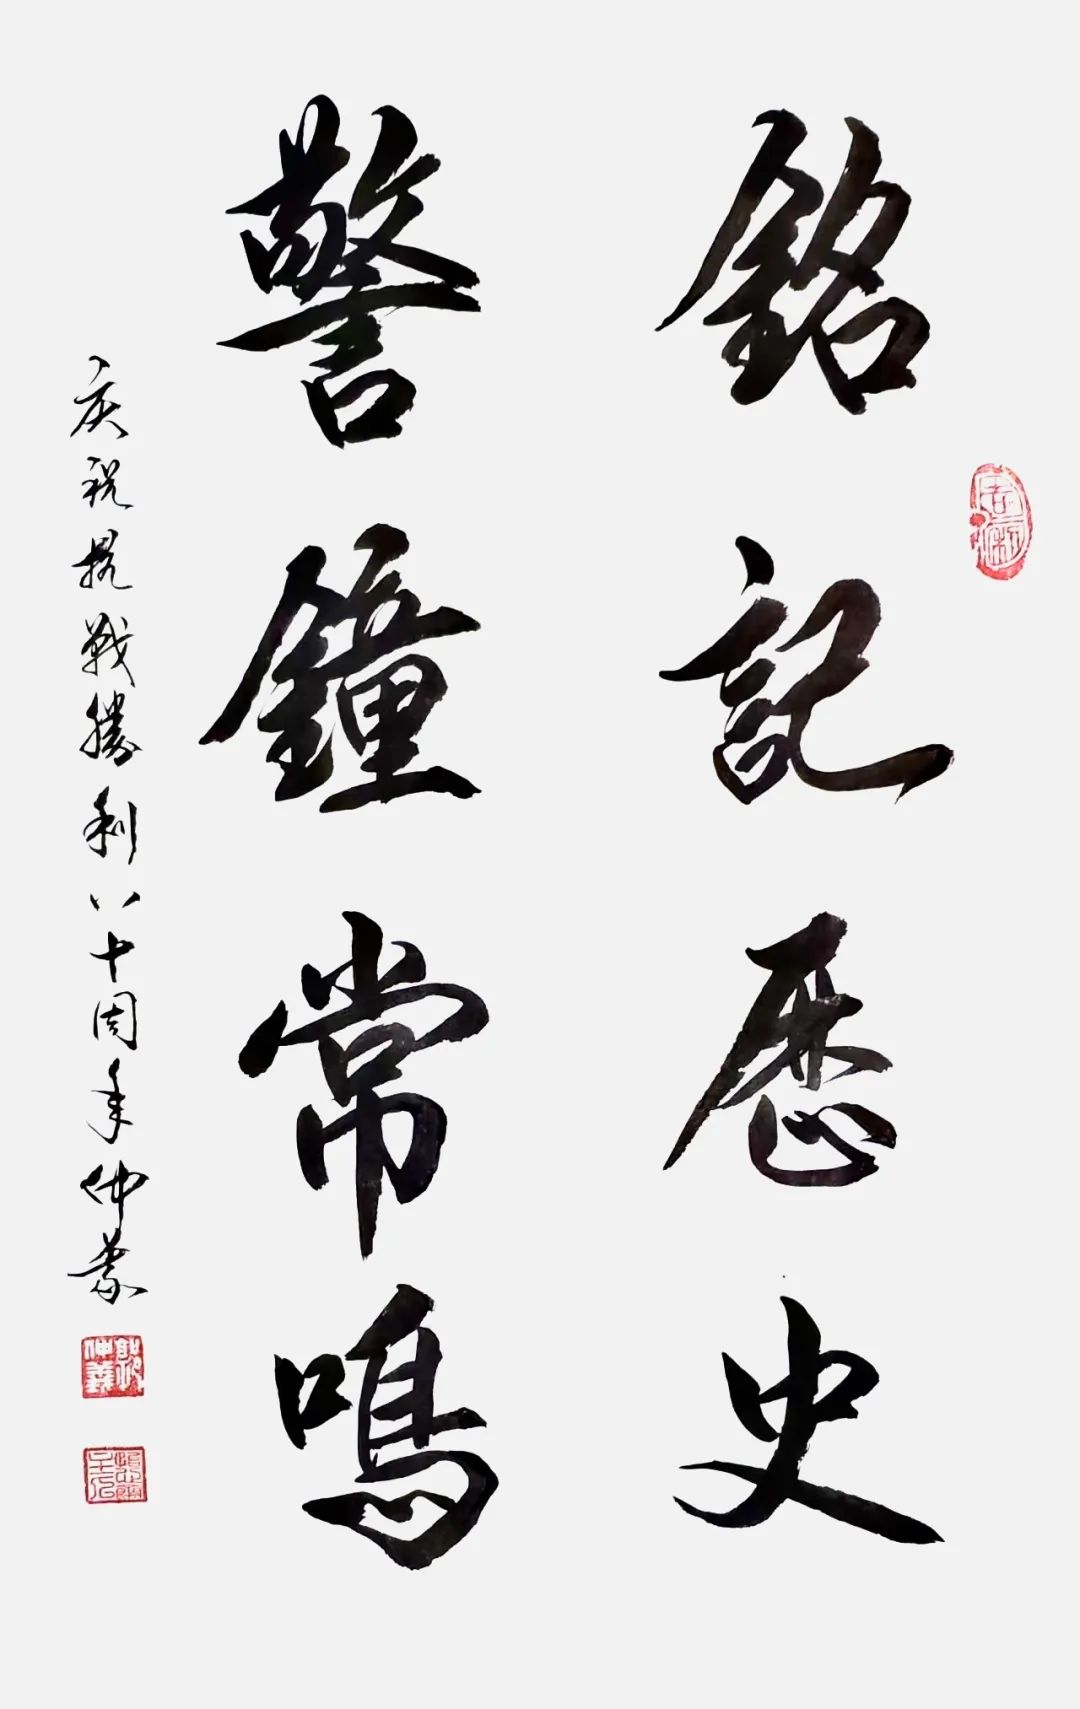 銘記歷史
警鐘常鳴
庆祝抗戰勝利八十周年仲義